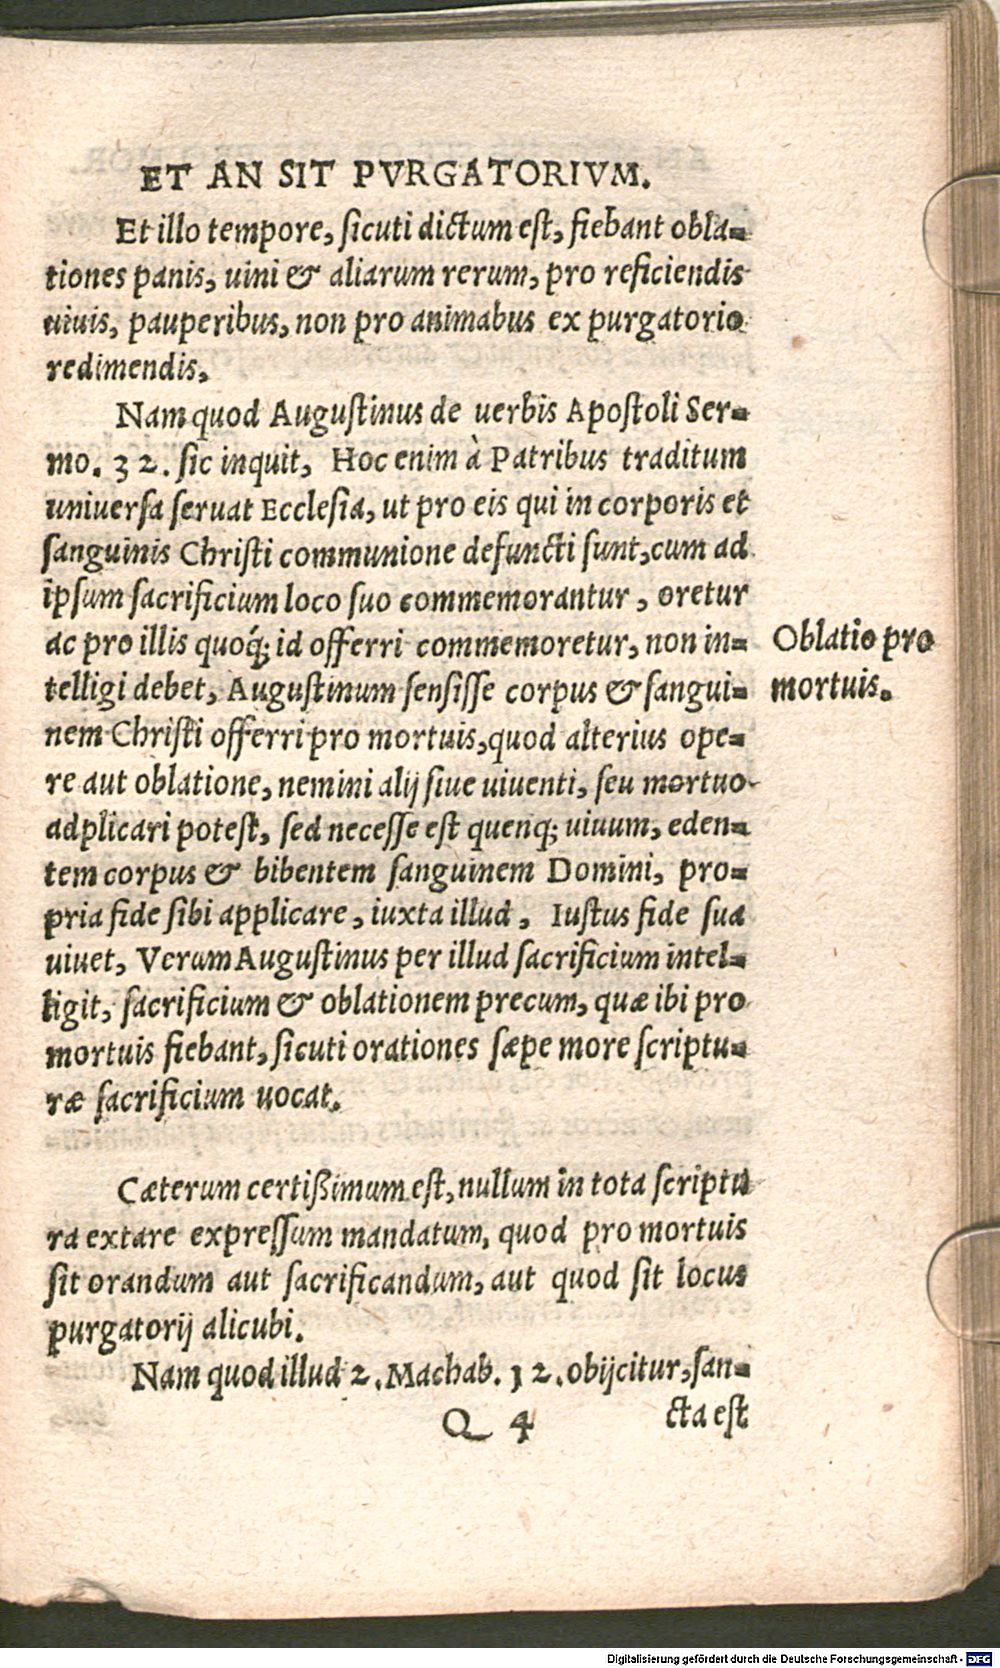 ET AN SIT PVRGATORIVM.
Et illo tempore, sicuti dictum est, fiebant obla-
tiones panis, uini & aliarum rerum, pro reficiendis
uiuis, pauperibus, non pro animabus ex purgatorio
redimendis.
Nam quod Augustinus de uerbis Apostoli Ser-
mo. 32. sic inquit, Hoc enim à Patribus traditum
uniuersa seruat Ecclesia, ut pro eis qui in corporis et
sanguinis Christi communione defuncti sunt, cum ad
ipsum sacrificium loco suo commemorantur, oretur
ac pro illis quoq́; id offerri commemoretur, non in-
telligi debet, Augustinum sensisse corpus & sangui-
nem Christi offerri pro mortuis, quod alterius ope-
re aut oblatione, nemini alij siue uiuenti, seu mortuo
adplicari potest, sed necesse est quenq; uiuum, eden-
tem corpus & bibentem sanguinem Domini, pro-
pria fide sibi applicare, iuxta illud, Iustus fide sua
uiuet, Verum Augustinus per illud sacrificium intel-
ligit, sacrificium & oblationem precum, quæ ibi pro
mortuis fiebant, sicuti orationes sæpe more scriptu-
ræ sacrificium uocat.
Oblatio pro
mortuis.
Cæterum certißimum est, nullum in tota scriptu
ra extare expressum mandatum, quod pro mortuis
sit orandum aut sacrificandum, aut quod sit locus
purgatorij alicubi.
Nam quod illud 2. Machab. 12. obijcitur, san-
Q 4 cta est
Digitalisierung gefördert durch die Deutsche Forschungsgemeinschaft - DFG